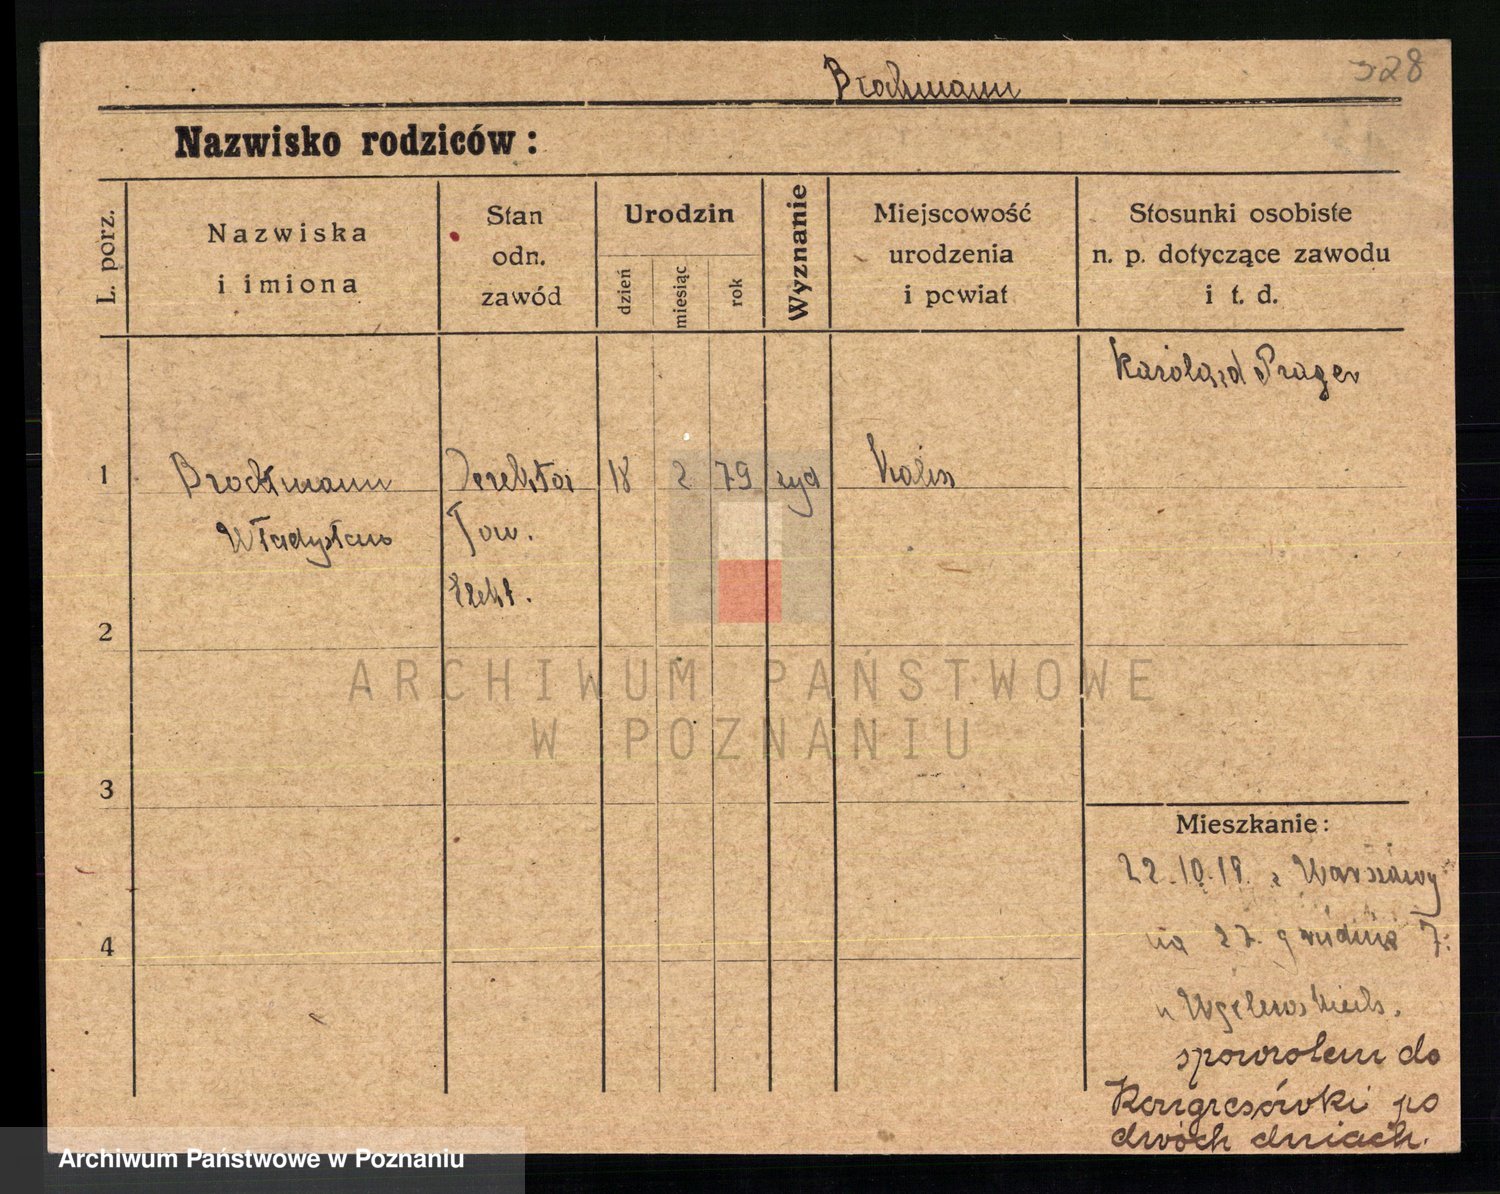 Brochmann
328
Nazwisko rodziców:
L. porz.
Nazwiska
i imiona
Stan
odn.
zawód
Urodzin
dzień
miesiąc
rok
Wyznanie
Miejscowość
urodzenia
i powiat
Stosunki osobiste
n. p. dotyczące zawodu
i t. d.
Prager
1
Brockmann
Władysław
Tow.
Elekt.
18
2
79
żyd
Kalisz
2
3
4
Mieszkanie:
22.10.19. z Warszawy
na 27. grudnia 7.
u
spowrotem do
Kongresówki po
dwóch dniach.
ARCHIWUM PAŃSTWOWE
W POZNANIU
Archiwum Państwowe w Poznaniu